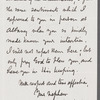 my some concernment which I
referred to you in person at
Albany when you so kindly
made known your intention
I will not repeat them here, but
only pray God to bless you and
have you in His keeping.
With respect and true affection
Your nephew